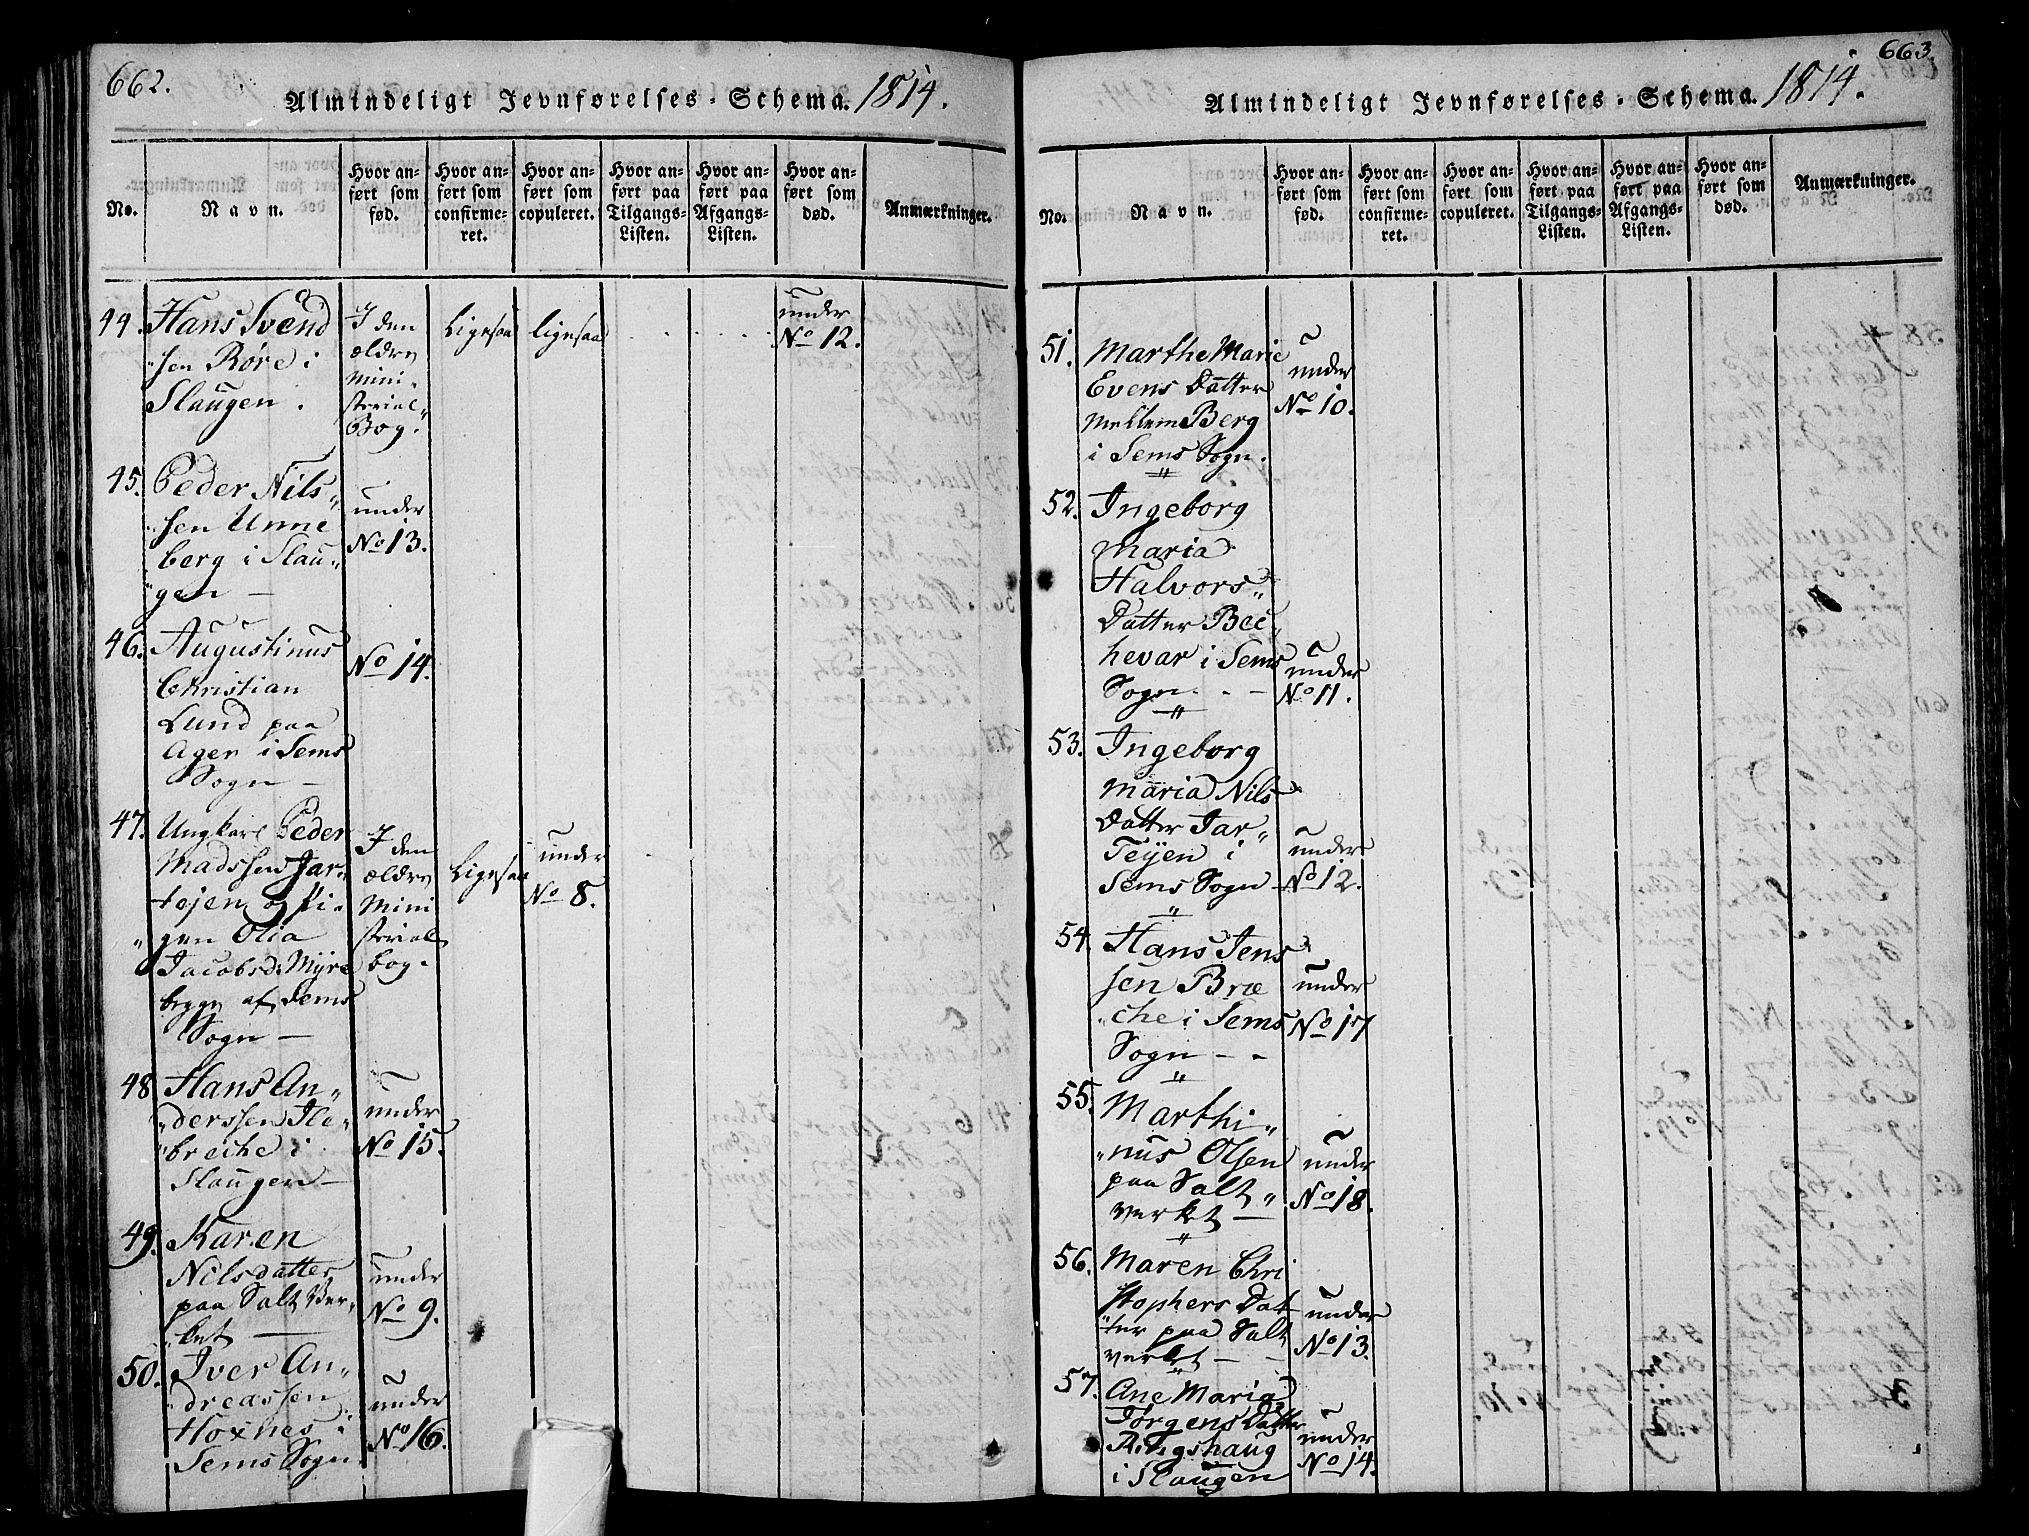 662.
Almindeligt Jevnførelses-Schema. 1814.
No.
Navn.
Hvor an-
ført som
fød.
Hvor an-
ført som
confirme-
ret.
Hvor an-
ført som
copuleret.
Hvor an-
ført paa
Tilgangs-
Listen.
Hvor an-
ført paa
Afgangs-
Listen.
Hvor an-
ført som
død.
Anmærkninger.
44. Hans Svend
sen Röre i
Slaugen.
I den
ældre
Mini-
sterial
Bog.
Ligesaa
ligesaa
under
No 12.
45. Peder Nils
sen Unne
berg i Slau
gen —
under
No 13.
46. Augustinus
Christian
Lund paa
Ager i Sems
Sogn —
No 14.
47. Ungkarl Peder
Madssen Jar-
tejen og Pi-
gen Olia
Jacobsd. Myre
begge af Sems
Sogn —
I den
ældre
Mini
sterial
bog.
Ligesaa
under
No 8.
48. Hans An-
derssen Ile-
breche i
Slaugen —
under
No 15.
49. Karen
Nilsdatter
paa Salt Ver-
ket —
under
No 9.
50. Iver An-
dreassen
Hoxnes i
Sems Sogn
under
No 16.
663.
Almindeligt Jevnførelses-Schema. 1814.
No.
Navn.
Hvor an-
ført som
fød.
Hvor an-
ført som
confirme-
ret.
Hvor an-
ført som
copuleret.
Hvor an-
ført paa
Tilgangs-
Listen.
Hvor an-
ført paa
Afgangs-
Listen.
Hvor an-
ført som
død.
Anmærkninger.
51. Marthe Marie
Evens Datter
Mellem Berg
i Sems Sogn.
under
No 10.
52. Ingeborg
Maria
Halvors
Datter Bec
hevar i Sems
Sogn. . —
under
No 11.
53. Ingeborg
Maria Nils
Datter Jar-
Teÿen i
Sems Sogn —
under
No 12.
54. Hans Jens
sen Bræ
che i Sems
Sogn - -
under
No 17
55. Marthi-
nus Olsen
paa Salt
verket —
under
No 18.
56. Maren Chri
stophers Dat
ter paa Salt
verket — —
under
No 13.
57. Ane Maria
Jörgens Datter
Ringshaug
i Slaugen
under
No 14.